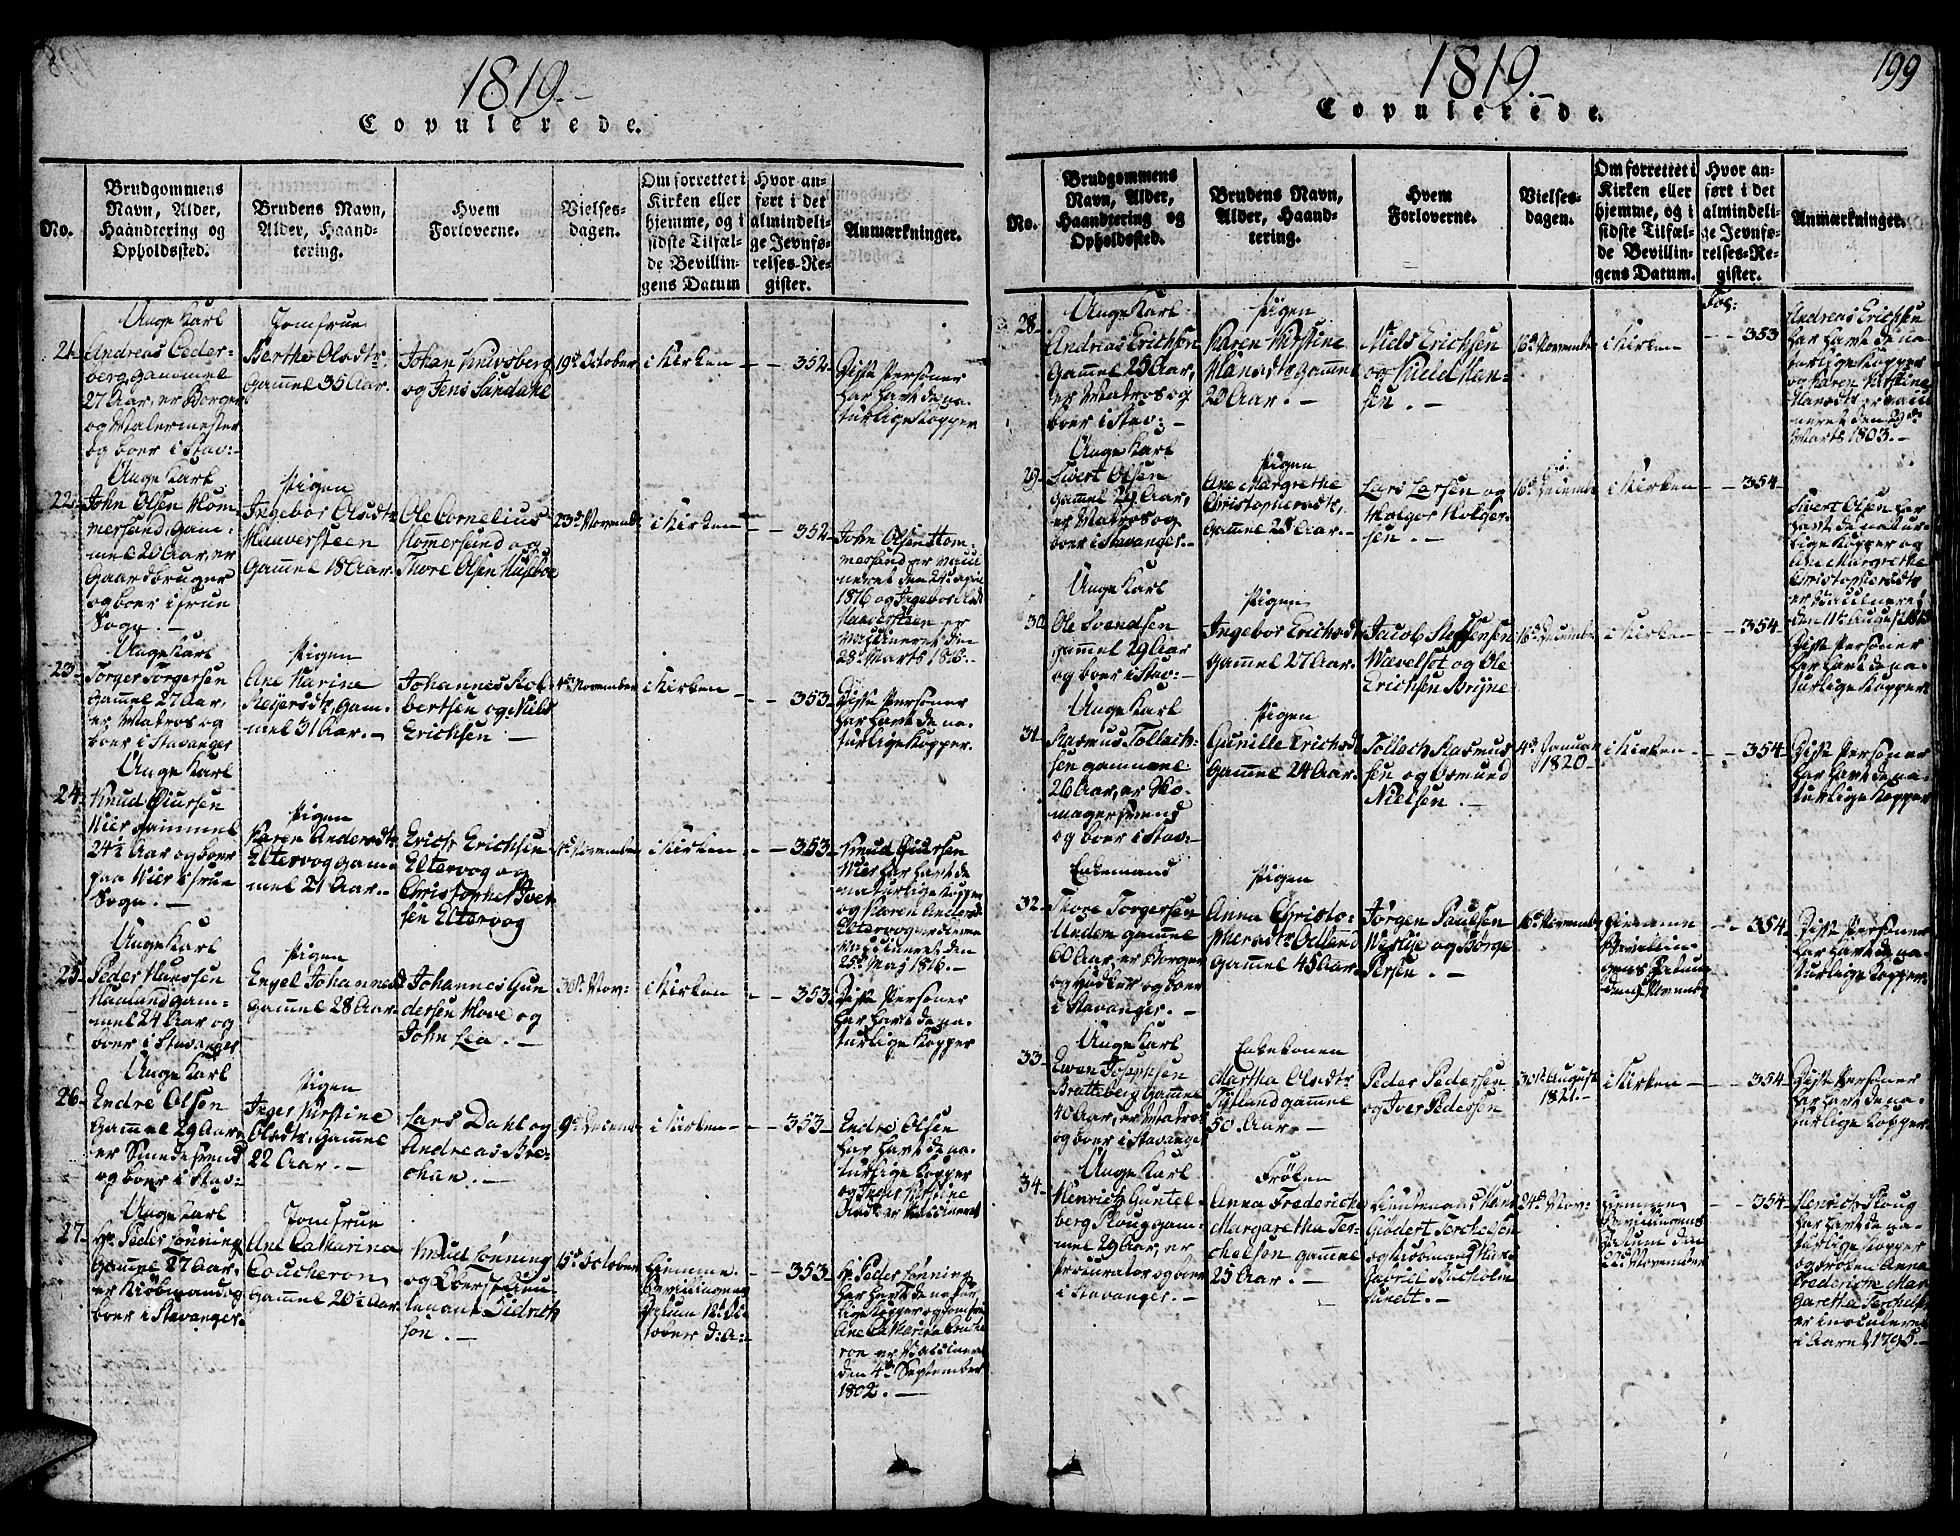 1819.-
Copulerede.
No.
Brudgommens
Navn, Alder,
Haandtering og
Opholdssted.
Brudens Navn,
Alder, Haand-
tering.
Hvem
Forloverne.
Vielses-
dagen.
Om forrettet i
Kirken eller
hjemme, og i
sidste Tilfæl-
de Bevillin-
gens Datum
Hvor an-
ført i det
almindeli-
ge Jevnfø-
relses-Re-
gister.
Anmærkninger.
21-
Unge Karl
Andreas Ceder-
berg gammel
27 Aar, er Borger
og Malermester
og boer i Stav:-
Jomfrue
Berthe Olsdtr
gam̅el 35 Aar.
Johan Knivsberg
og Jens Sandahl
19de October
i Kirken
352-
Disse Personer
har havt de na-
turlige Kopper
22-
Unge Karl
John Olsen Hom-
mersand, gam-
mel 20 Aar, er
Gaardbruger
og boer i Frue
Sogn. -
Pigen
Ingebor Olsdtr
Haaversteen
gam̅el 18 Aar.
Ole Cornelius
Homersand og
Thore Olsen Husebøe
23de Novembr
i Kirken
352-
John Olsen Hom-
mersand er vacci-
neret den 24de April
1816 og Ingebor Olsdtr
Haaversteen er
vaccineret den
28de Marts 1816.-
23-
Unge Karl
Torger Torgersen
gam̅el 27 Aar,
er Matros og
boer i Stavanger
Pigen
Ane Karine
Reijersdtr, gam-
mel 31 Aar.-
Johannes Rol-
bertsen og Niels
Erichsen -
4de November
i Kirken
353-
Disse Personer
har havt de na-
turlige Kopper.
24-
Unge Karl
Knud Siursen
Wier gammel
24½ Aar og boer
paa Wier i Frue
Sogn. -
Pigen
Karen Andersdtr
Eltervog gam-
mel 21 Aar.
Erich Erichsen
Eltervog og
Christopher Iver
sen Eltervog
4de November
i Kirken
353-
Knud Siursen
Wier har havt de
naturlige Kopper
og Karen Andersdtr
Eltervog er bleven
vaccineret den
25de Maj 1816.-
25-
Unge Karl
Peder Hansen
Haaland gam-
mel 24 Aar og
boer i Stavanger
Pigen
Engel Johannesdtr
gam̅el 28 Aar.
Johannes Gun
dersen Hove og
John Lia. -
30te Nov:
i Kirken
353-
Disse Personer
har havt de na-
turlige Kopper
26-
Unge Karl
Endre Olsen
gam̅el 29 Aar,
er Smedesvend
og boer i Stav:
Pigen
Inger Kirstine
Olsdtr, gam̅el
22 Aar. -
Lars Dahl og
Andreas Bre-
chan. -
9de Decembr
i Kirken -
353-
Endre Olsen
har havt de na-
turlige Kopper
og Inger Kirstine
Olsdtr er vaccineret
27-
Unge Karl
Hr. Peder Lønning
gam̅el 27 Aar,
er Kiøbmand og
boer i Stavanger.
Jomfrue
Ane Catharina
Coucheron
gam̅el 20½ Aar.
Knud Lønning
og Leuteu-
tenant Didrich
søn. -
15de October
hjemme.
Bevillingens
Datum 12te Oc-
tober d: A:
353-
Hr Peder Lønning
har havt de natur
lige Kopper og Jomfru
Ane Catharina Couche
ron er Vaccineret
den 4de September
1802. -
1819.-
199
Copulerede.
No.
Brudgommens
Navn, Alder,
Haandtering og
Opholdssted.
Brudens Navn,
Alder, Haand-
tering.
Hvem
Forloverne.
Vielses-
dagen.
Om forrettet i
Kirken eller
hjemme, og i
sidste Tilfæl-
de Bevillin-
gens Datum.
Hvor an-
ført i det
almindeli-
ge Jevnfø-
relses-Re-
gister.
Anmærkninger.
Fog:
28-
Unge Karl
Andreas Erichsen
gam̅el 25 Aar,
er Matros og
boer i Stav: -
Pigen
Karen Kirstine
Hansdtr gam̅el
20 Aar. -
Niels Erichsen
og Kield Han-
sen. -
16de November
i Kirken
353
Andreas Erichsen
har havt de na-
turlige Kopper
og Karen Kirstine
Hansdtr er vacci
neret den 29de
Marts 1803.-
29-
Unge Karl
Sivert Olsen
gam̅el 29 Aar,
er Matros og
boer i Stavanger.-
Pigen
Ane Margrethe
Christophersdtr,
gam̅el 28 Aar.-
Lars Larsen og
Holger Holger-
sen. -
16de December
i Kirken
354-
Sivert Olsen har
havt de natur-
lige Kopper og
Ane Margrethe
Christophersdtr
er Vaccineret
den 11te August 1813
30
Unge Karl
Ole Svendsen
gam̅el 29 Aar
og boer i Stav:-
Pigen
Ingebor Erichsdtr
gam̅el 27 Aar.
Jacob Steffensen
Wævelsot og Ole
Erichsen Brÿne
16de December
i Kirken
354-
Disse Personer
har havt de na-
turlige Kopper
31-
Unge Karl
Rasmus Tollach-
sen gammel
26 Aar, er Sko-
magersvend
og boer i Stav:-
Pigen
Gunille Erichsdtr
gam̅el 24 Aar.
Tollach Rasmus
sen og Osmund
Nielsen. -
4de Januar
1820-
i Kirken -
354-
Disse Personer
har havt de na-
turlige Kopper
32-
Enkemand
Thore Torgersen
Unden gam̅el
60 Aar, er Borger
og Hødker og boer
i Stavanger. -
Pigen
Anna Christo-
phersdtr Odland
gam̅el 45 Aar.
Jørgen Paulsen
Westlie og Børge
Persen. -
16de November
hjemme
Bevillin-
gens Datum
den 9de Novembr
354-
Disse Personer
har havt de na-
turlige Kopper.
33-
Unge Karl
Ewen Josephsen
Bratteberg gam̅el
40 Aar, er Matros
og boer i Stavanger
Enkekonen
Martha Olsdtr
Tÿtland gam̅el
50 Aar. -
Peder Pedersen
og Iver Pedersen
30te August
1821.-
i Kirken -
354-
Disse Personer
har havt de na-
turlige Kopper.
34-
Unge Karl
Henrich Guntel-
berg Ploug gam-
mel 29 Aar, er
Procurator og boer
i Stavanger. -
Frøken
Anna Frederiche
Margaretha Ter-
chelsen gam̅el
25 Aar. -
Lieutenant Hans
Giödert Terchelsen
og Kiøbmand Hans
Gabriel Bucholm
Sundt. -
24de Nov:
hjemme
Bevillingens
Datum den
22de November
354-
Henrich Ploug
har havt de na-
turlige Kopper
og Frøken Anna
Frederiche Mar
garetha Terchelsen
er inoculeret
i Aaret 1795.-